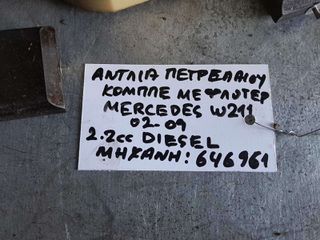 ΑΝΤΛΙΑ ΠΕΤΡΕΛΑΙΟΥ
ΚΟΜΠΛΕ ΜΕ ΦΛΟΤΕΡ
MERCEDES W211
02-09
2.2cc DIESEL
ΜΗΧΑΝΗ: 646961